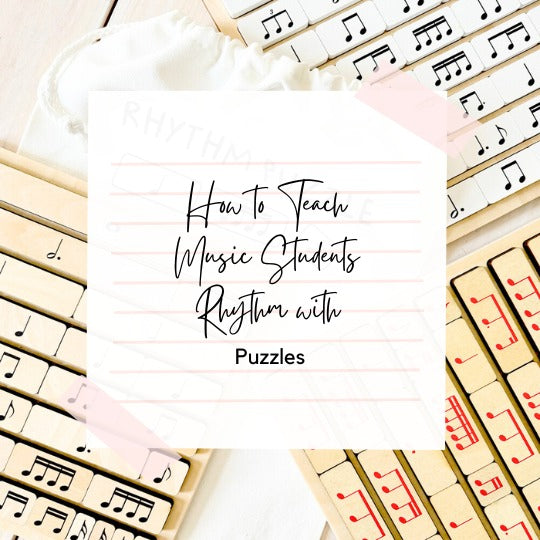 RHYTHM
How to Teach
Music Students
Rhythm with
Puzzles